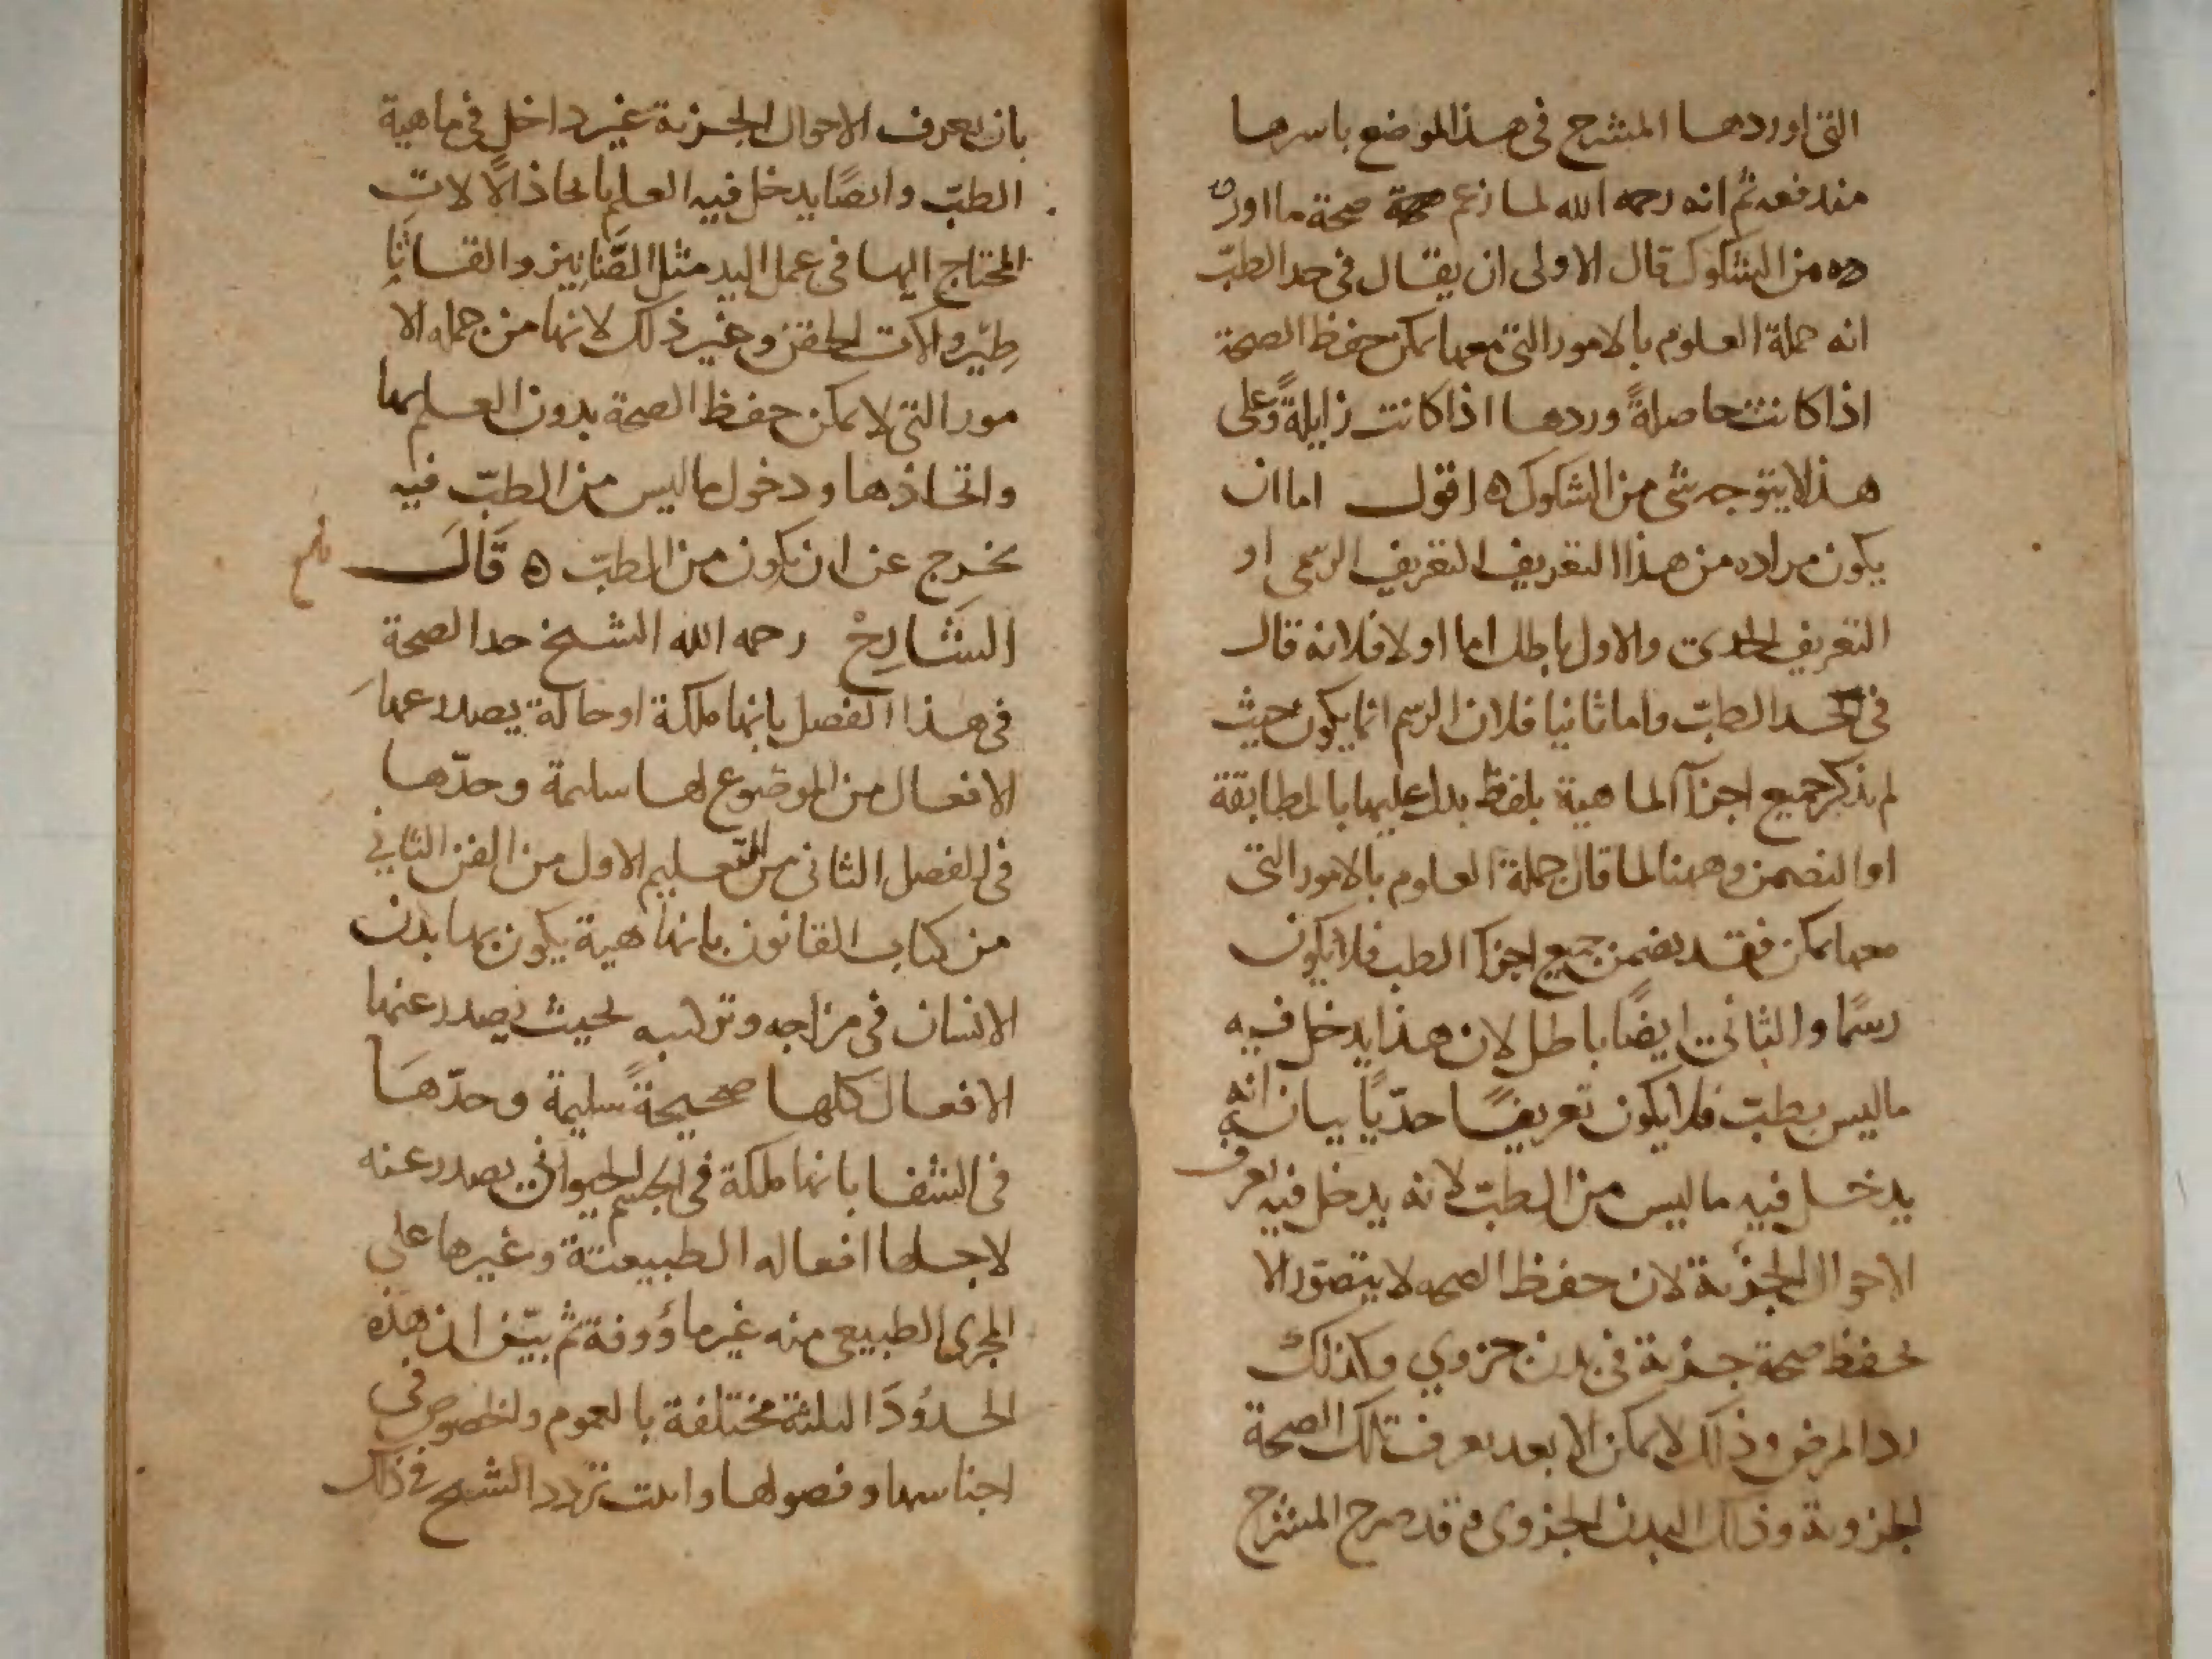 التى اوردها المشرح فى هذا الموضع باسرها
مندفعه ثم انه رحمه الله لما زعم صحة ما اور
ده من الشكوك قال الاولى ان يقال فى حد الطبّ
انه جملة العلوم بالامور التى معها يمكن حفظ الصحة
اذا كانت حاصلةً وردها اذا كانت زايلةً وعلى
هذا لا يتوجه شئ من الشكوك ه اقول اما ان
يكون مراده من هذا التعريف التعريف الرسمى او
التعريف الحدى والاول باطل اما اولا فلانه قال
فى حد الطبّ واما ثانيا فلان الرسم انما يكون حيث
لم يذكر جميع اجزآ الماهية بلفظ يدل عليها بالمطابقة
او التضمن وههنا لما قال جملة العلوم بالامور التى
معها يمكن فقد يضمن جميع اجزآ الطب فلا يكون
رسمًا والثانى ايضًا باطل لان هذا يدخل فيه
ما ليس بطبّ فلا يكون تعريفًا حدّيًا بيان انه
يدخل فيه ما ليس من الطبّ لانه يدخل فيه تعرف
الاحوال الجزئية لان حفظ الصحه لا يتصوّر الا
بحفظ صحة جزية فى بدن جزوي وكذلك
رد المرض وذلك لا يمكن الا بعد تعرف تلك الصحة
الجزوية وذلك البدن الجزوى وقد صرح المشرح
بان تعرف الاحوال الجزية غير داخل فى ماهية
الطبّ وايضًا يدخل فيه العلم باتحاذ الآلات
المحتاج اليها فى عمل اليد مثل الصَّنانيز والقساثا
طيّر والات الحقن وغير ذلك لانها من جمله الا
مور التى لا يمكن حفظ الصحة بدون العلم بها
واتخاذها ودخول ما ليس من الطبّ فيه
يخرج عن ان يكون من الطبّ ه قَالَ
الشَّارِحْ رحمه الله الشيخ حد الصحة
فى هذا الفصل بانها ملكة او حالة يصدر عنها
الافعال من الموضوع لها سليمة وحدّها
فى الفصل الثانى من التعليم الاول من الفن الثاني
من كتاب القانون بانها هية يكون بها بدن
الانسان فى مزاجه وتركيبه بحيث يصدر عنها
الافعال كلها صحيحةً سليمة وحدّهَا
فى الشفا بانها ملكة فى الجسم الحيوانى يصدر عنه
لاجلها افعاله الطبيعية وغيرها على
المجرى الطبيعى منه غير مأووفة ثم بيّن ان هذه
الحدُودَ الثلثة مختلفة بالعموم والخصوص فى
اجناسها وفصولها واثبت تردد الشيخ فى ذلك